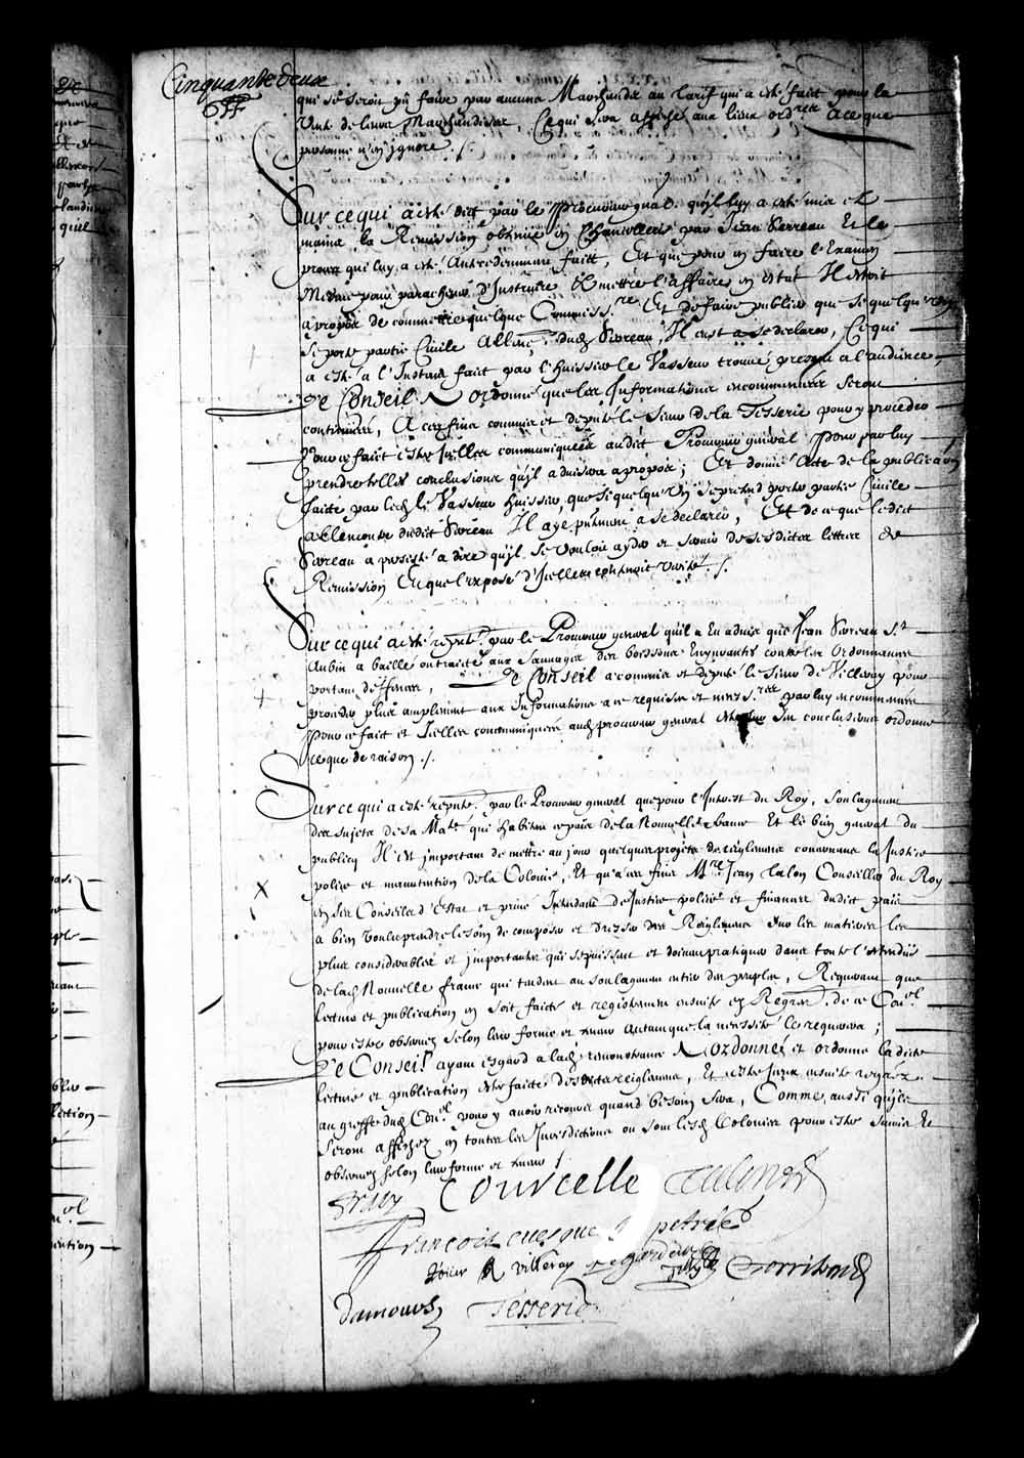 Cinquante deux
qui se seroit pû faire par aucuns Marchands au tarif qui a esté faict pour la
Vente de leurs Marchandises, Ce qui sera affiché aux lieux ordres A ce que
personne n'en ignore ./.
Sur ce qui a esté dict par le Procureur gnal. qu'il luy a esté mis es
mains la Remission obtenüe en Chancellerie par Jean Serreau Et le
procez qui luy a esté Antredemment faict, Et que pour en faire l'Examen
Mesme pour parachever d'Instruire Et mettre l'affaire en estat Il estoit
apropos de commettre quelque Commissre Et de faire publier que si quelqu'vn
se porte partie Civile Allenc. dud. Serreau, Il eust a se declarer, Ce qui
a esté a l'Instant faict par l'huissier le Vasseur trouvé presque a l'audience,
Le Conseil A ordonné que les Informations encommencées seront
continuées, A ces fins commis et deputé le Sieur de la Tesserie pour y proceder
Pour ce faict estre Icelles communiquées audict Procureur general Pour par luy
prendre telles conclusions qu'il advisera apropos; Et donné Acte de la publicaon
faicte par led. le Vasseur huissier, que si quelqu'vn se pretend porter partie Civile
allencontre dudict Sereau Il aye presentement a se declarer, Et de ce que ledict
Sereau a persisté a dire qu'il se vouloit ayder et servir de sesdictes lettres de
Remission Et que l'exposé d'Icelles contenoit verité ./.
Sur ce qui a esté represté par le Procureur general qu'il a Eu advis que Jean Sereau St
Aubin a baillé ou traicté aux Sauvages des boissons Enyvrantes contre les Ordonnances
portant deffences, Le Conseil a commis et deputé le Sieur de Villeray pour
proceder plus amplement aux Informations a ce requises et necessres par luy encommencées
Pour ce faict et Icelles communiquées aud. procureur general estre sur ses conclusions ordonné
ce que de raison ./.
Sur ce qui a esté represté par le Procureur general que pour l'Interest du Roy, Soulagement
des sujets de sa Maté qui habitent ce païs de la Nouvelle france Et le bien general du
publicq Il est important de mettre au jour quelques projets de reiglemens concernans la Justice
police et manutention de la Colonie, Et qu'a ces fins Mre Jean Talon Conseiller du Roy
en ses Conseils d'Estat et privé Intendant de Justice police et finances dudict païs
a bien voulu prendre le soin de composer et dresser des Reiglemens sur les matieres les
plus considerables et importantes qui se puissent et doivent pratiquer dans toute l'estendüe
de lad. Nouvelle france qui tendent au soulagement entier des peuples, Requerant que
lecture et publication en soit faicte et registrement ensuite es Registres de ce Conel
pour estre observez selon leur forme et teneur Autant que la necessité le requerera;
Le Conseil ayant esgard a lad. remonstrance A ordonné et ordonne ladicte
lecture et publication estre faicte desdicts reiglemens, Et estre iceux ensuite registrez
au greffe dud. Conel pour y avoir recours quand besoin sera, Comme aussi qu'ils
seront affichez en toutes les Jurisdictions ou sont lesd. Colonies pour estre suivis Et
observez selon leur forme et teneur /.
Tracy Courcelle Talon
François evesque de petrée
Roüer de Villeray Le gardeur de Tilly Gorribon
Damours Tesserie